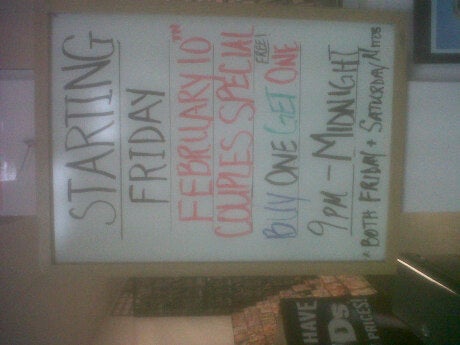 STARTING
FRIDAY
FEBRUARY 10TH
COUPLES SPECIAL
BUY ONE GET ONE FREE!
9PM - MIDNIGHT
* BOTH FRIDAY + SATURDAY NITES
HAVE
DS
PRICES!